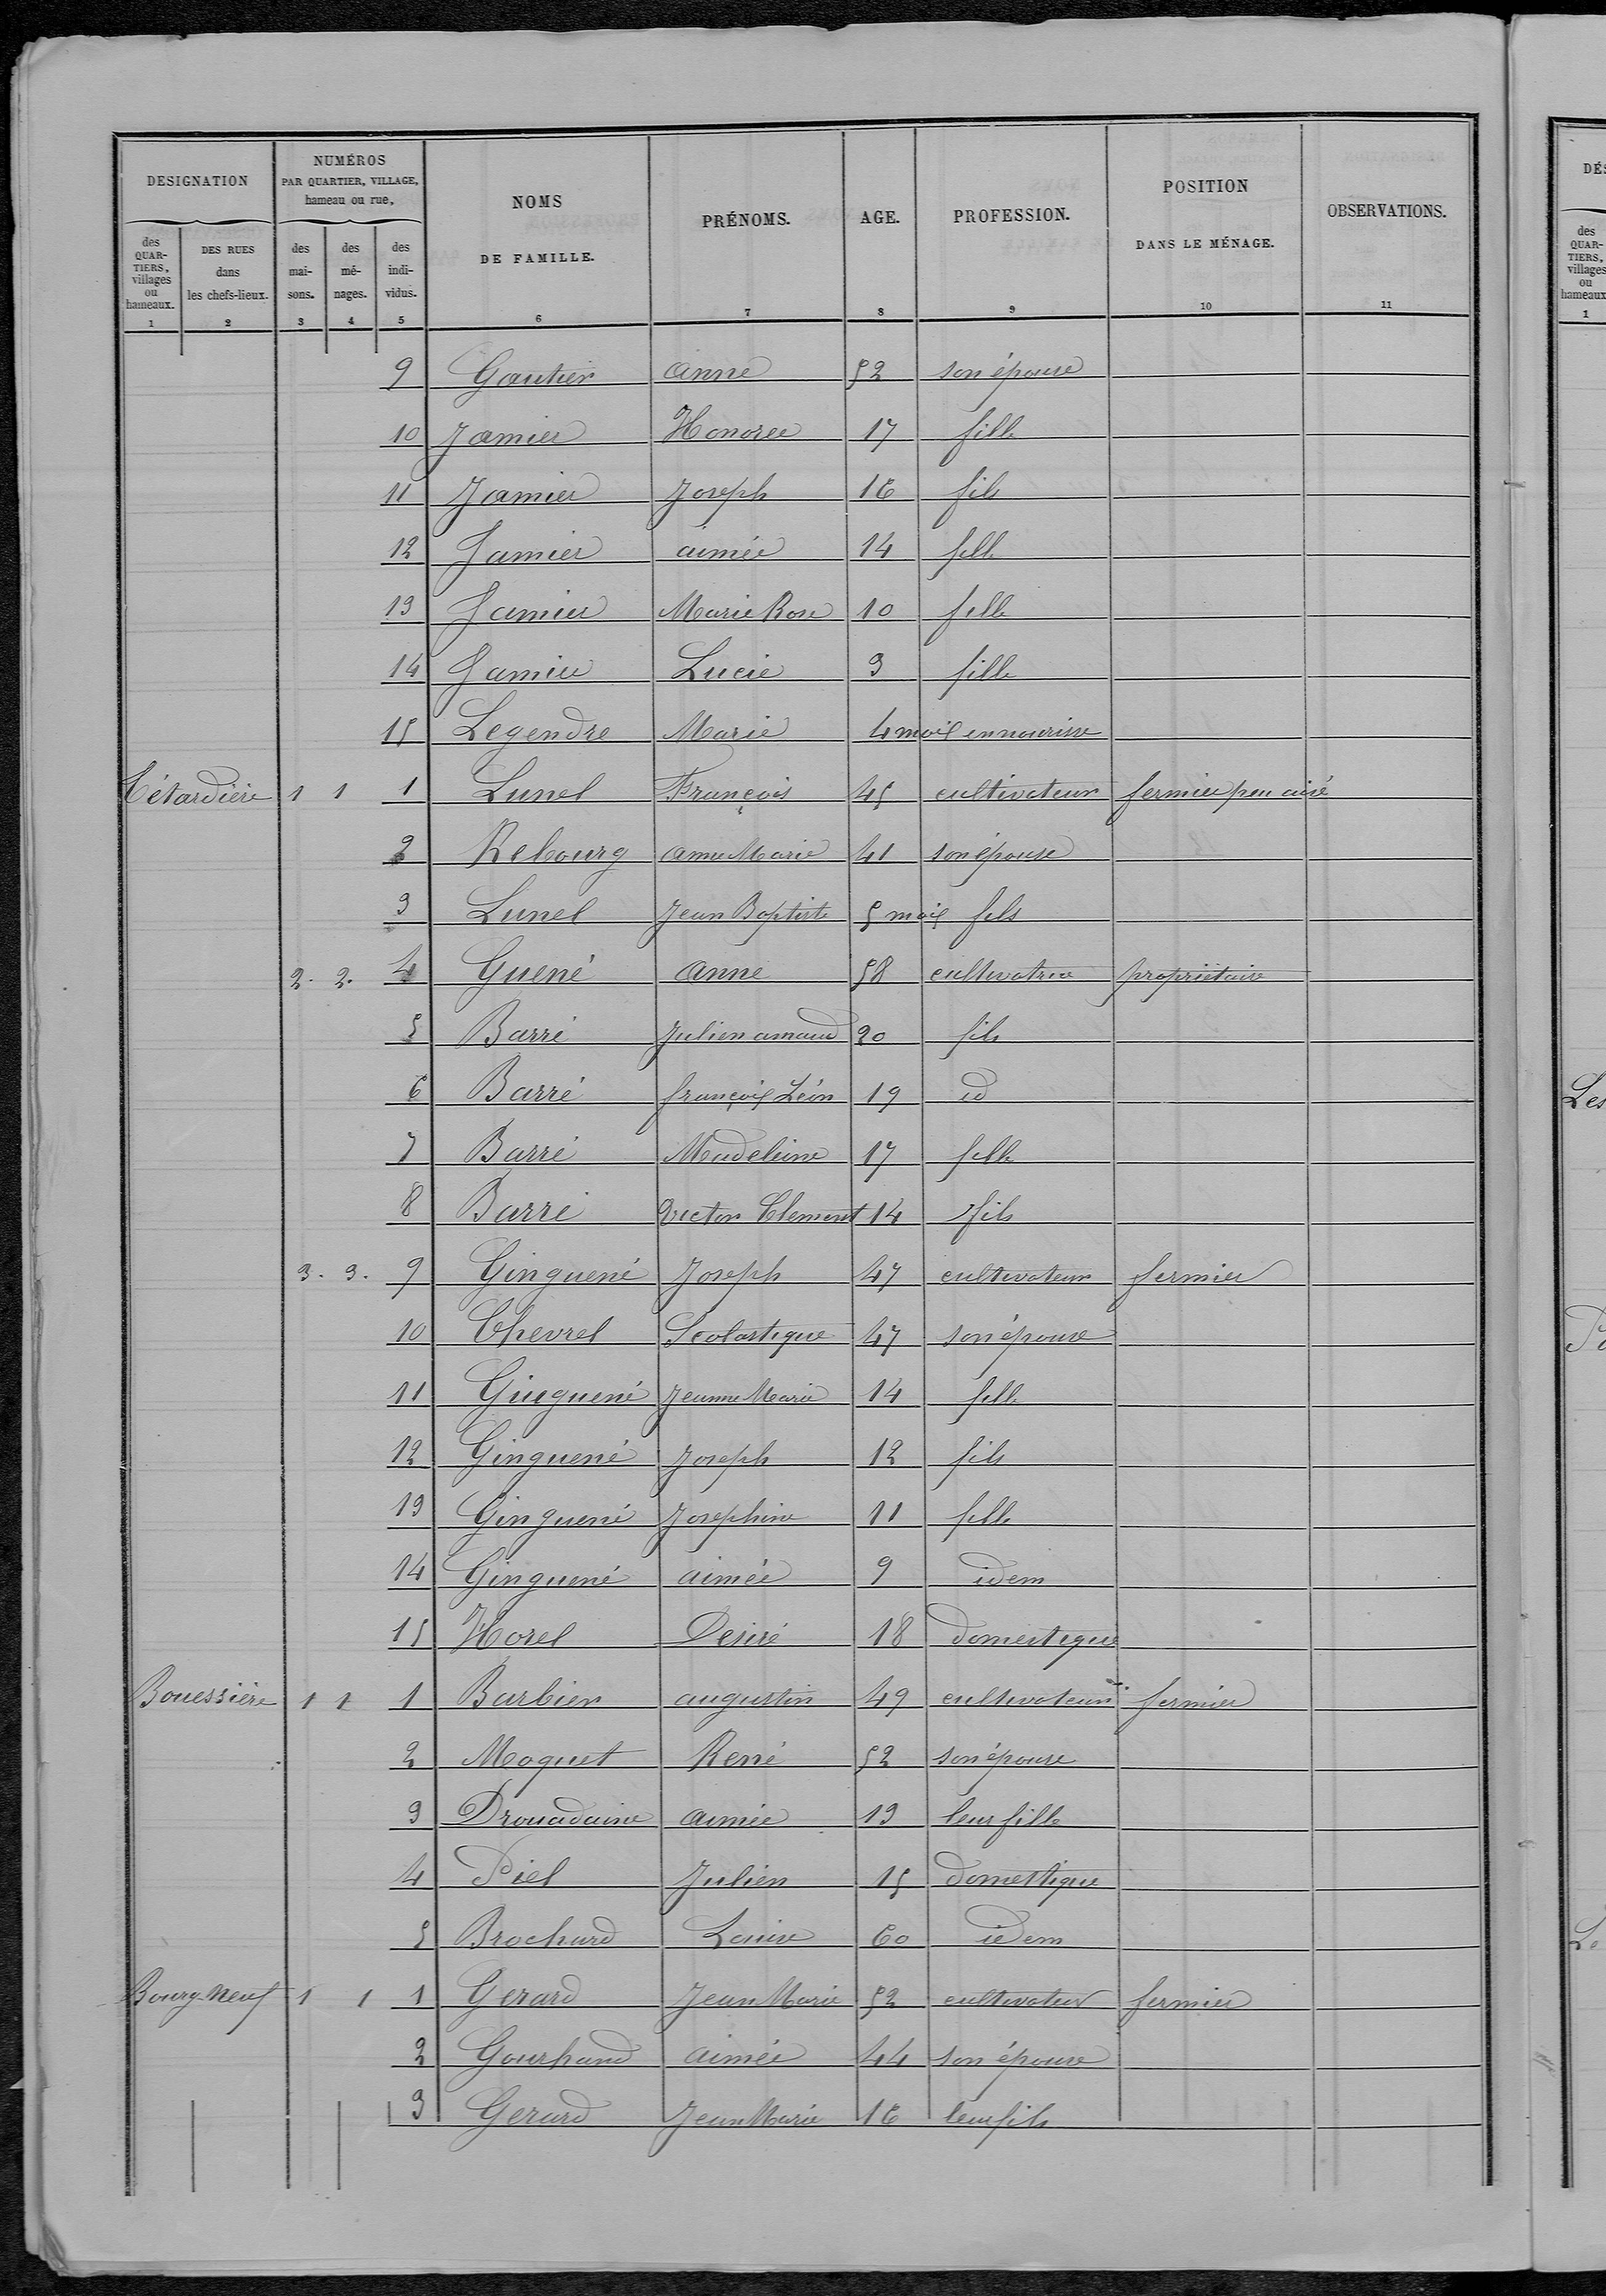 DESIGNATION
NUMÉROS
PAR QUARTIER, VILLAGE,
hameau ou rue,
NOMS
DE FAMILLE.
PRÉNOMS.
AGE.
PROFESSION.
POSITION
DANS LE MÉNAGE.
OBSERVATIONS.
des QUARTIERS, villages ou hameaux.
DES RUES dans les chefs-lieux.
des maisons.
des ménages.
des individus.
1 2 3 4 5 6 7 8 9 10 11
9 Gautier anne 52 son épouse
10 Jamier Honoree 17 fille
11 Jamier Joseph 16 fils
12 Jamier aimée 14 fille
13 Jamier Marie Rose 10 fille
14 Jamier Lucie 3 fille
15 Legendre Marie 4 mois en nourisse
Tétardière 1 1 1 Lunel François 45 cultivateur fermier peu aisé
2 Rebourg anne Marie 41 son épouse
3 Lunel Jean Baptiste 5 mois fils
2. 2. 4 Guené anne 58 cultivatrice propriétaire
5 Barré Julien amand 20 fils
6 Barré françois Léon 19 id
7 Barré Madeleine 17 fille
8 Barré Victor Clement 14 fils
3. 3. 9 Ginguené Joseph 47 cultivateur fermier
10 Chevrel Scolastique 47 son épouse
11 Ginguené Jeanne Marie 14 fille
12 Ginguené Joseph 12 fils
13 Ginguené Josephine 11 fille
14 Ginguené aimée 9 idem
15 Horel Desiré 18 domestique
Bouessière 1 1 1 Barbier augustin 49 cultivateur fermier
2 Moquet René 52 son épouse
3 Drouadaine aimée 13 leur fille
4 Piel Julien 15 domestique
5 Brochard Louise 60 idem
Bourg-Neuf 1 1 1 Gerard Jean Marie 52 cultivateur fermier
2 Gourhand aimée 44 son épouse
3 Gerard Jean Marie 16 leur fils
DÉS
des QUARTIERS, villages ou hameaux
1
Les